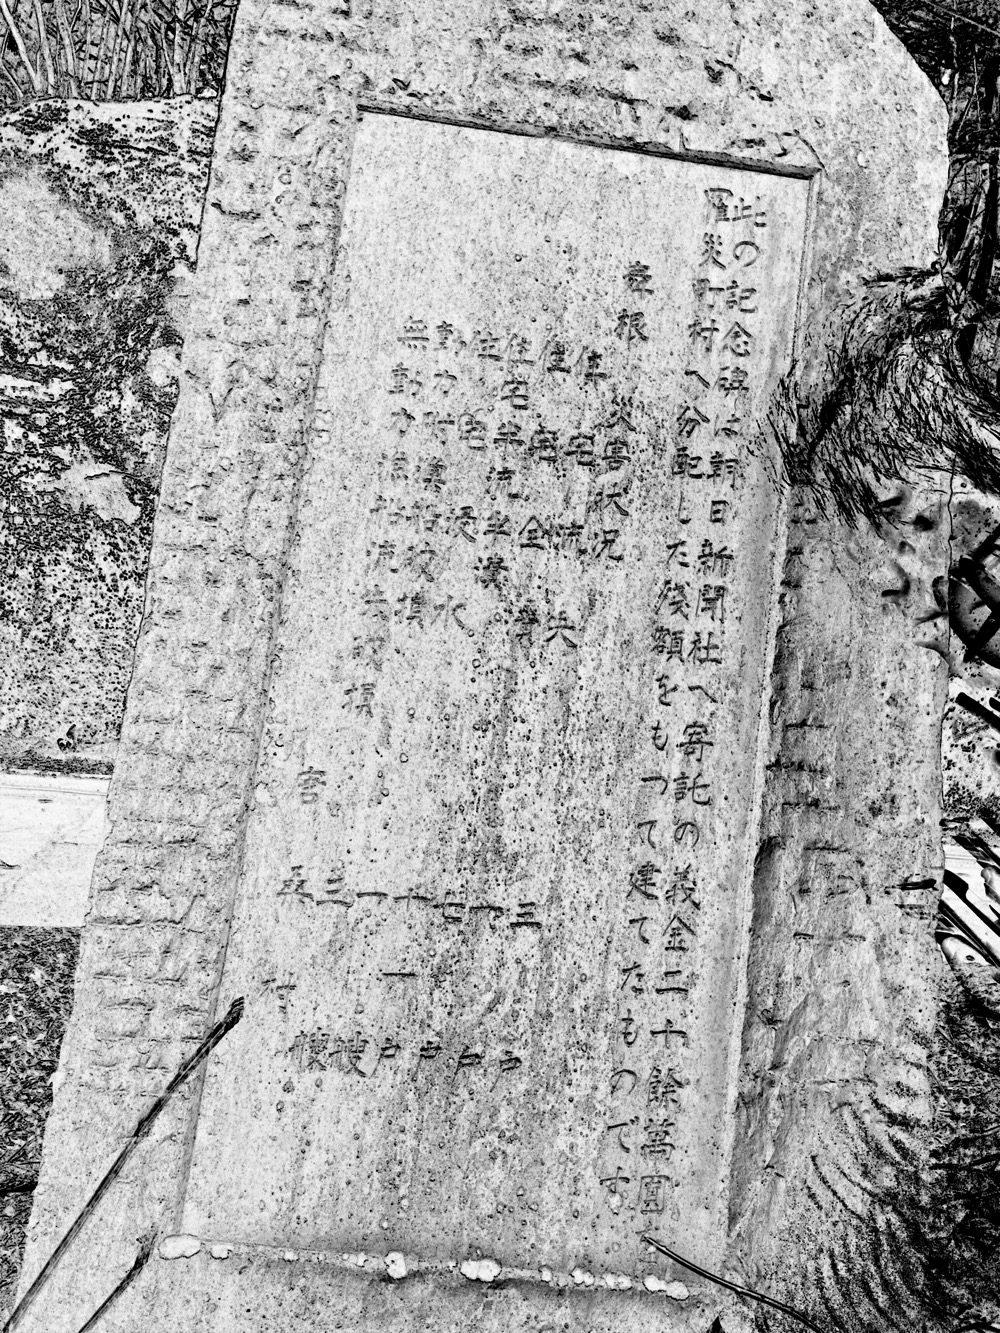 此の記念碑は朝日新聞社へ寄託の義金二十餘萬圓を
罹災町村へ分配した残額をもつて建てたものです
舞根 災害状況
住宅流失 三戸
住宅全潰 戸
住宅半流半潰 七戸
住宅浸水 十一戸
動力附漁船破損 一艘
無動力漁船流失破損 三艘
唐桑村